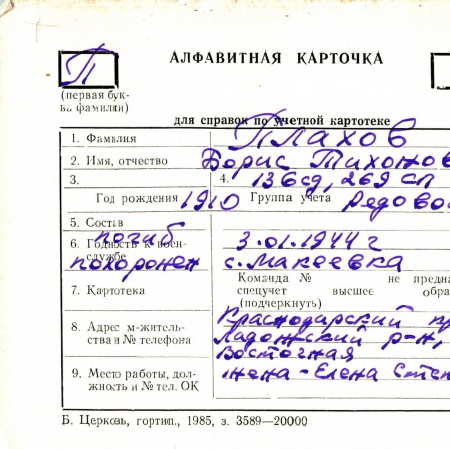 П
АЛФАВИТНАЯ КАРТОЧКА
(первая бук-
ва фамилии)
для справок по учетной картотеке
1. Фамилия Плахов
2. Имя, отчество Борис Тихонов
3. 4. 136 сд, 269 сп
Год рождения 1910 Группа учета Рядово
5. Состав погиб
6. Годность к воен- 3.01.1944 г
службе похоронен с. Макеевка
7. Картотека Команда № не предна
спецучет высшее обра
(подчеркнуть)
8. Адрес м-житель- Краснодарский
ства и № телефона Ладожский р-н,
Восточная
9. Место работы, дол- жена - Елена Степ
жность и № тел. ОК
Б. Церковь, гортип., 1985, з. 3589—20000